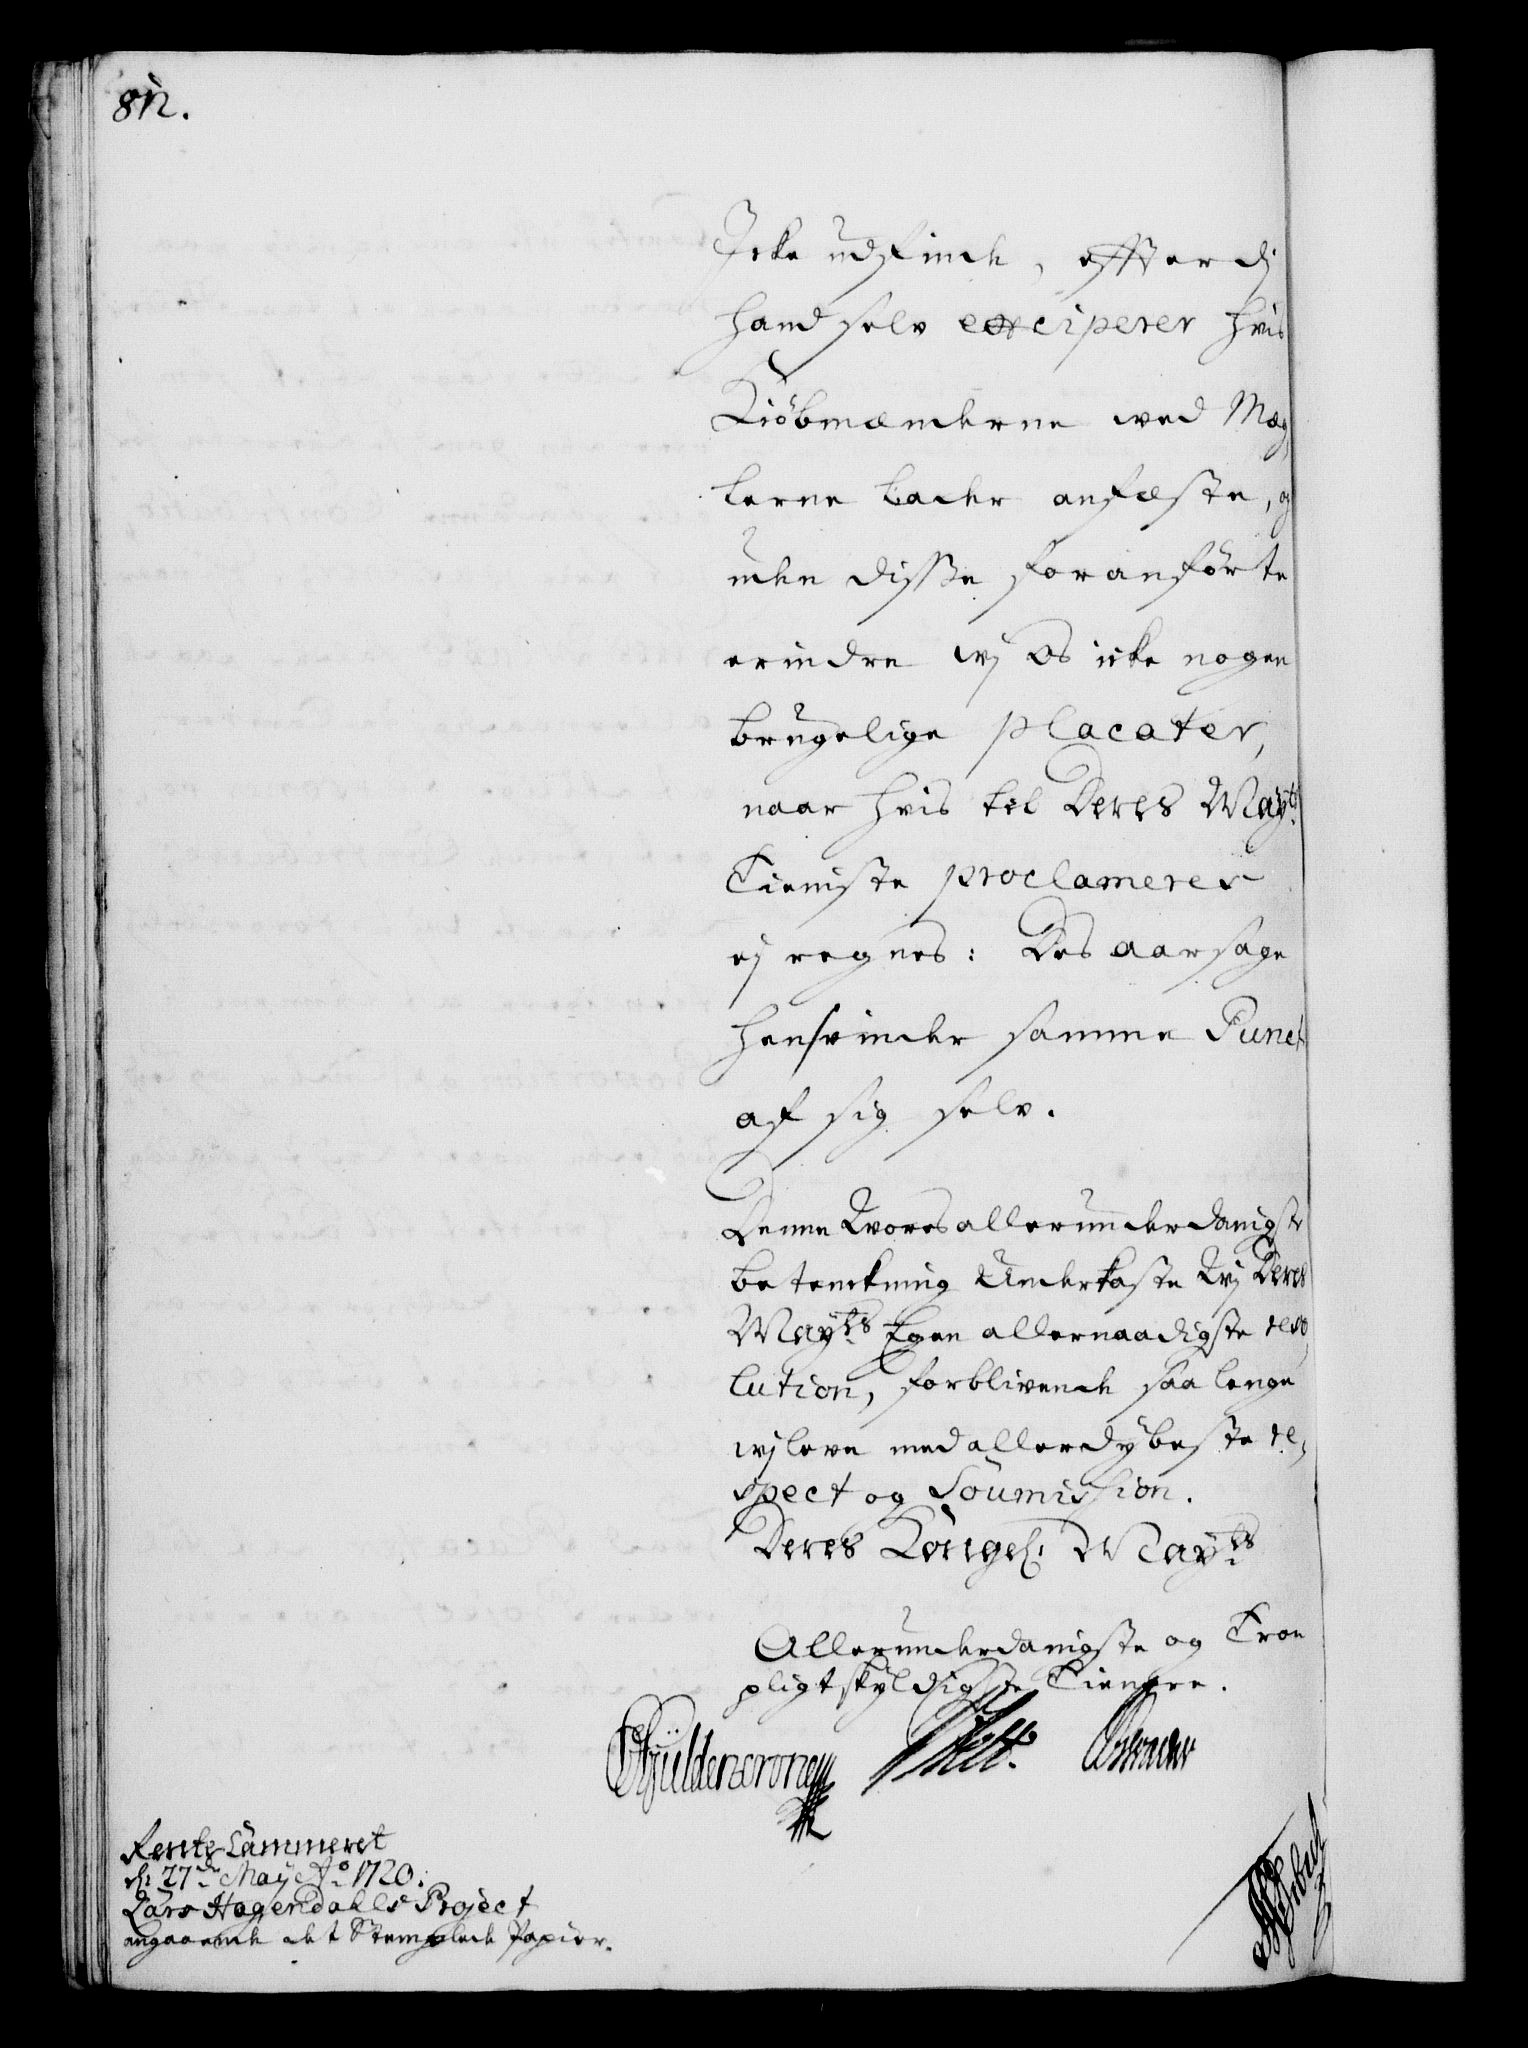 812.
Icke udfinde, efterdj
hand selv exciperer hvis
Kiöbmænderne wed Mæg,
lerne lader anfæste, og
uden disse foranförte
erindre wj Os icke nogen
brugelige Placater,
naar hvis til Deres Mayts
Tieniste proclameres
ej regnes: Des aarsage
hensvinder samme Punct
af sig selv.
Denne Vores allerunderdanigste
betenckning Underkaste Vj Deres
Mayts Egen allernaadigste reso,
lution, forblivende saa lenge
wj leve med allerdybeste re,
spect og Soumission.
Deres Kongel: Mayts
Allerunderdanigste og Troe
pligtskyldigste Tienere.
Gyldencrone
Rente Cammeret
d: 27de May Ao 1720.
Lars Hagendahls Project
angaaende det Stemplede Papier.